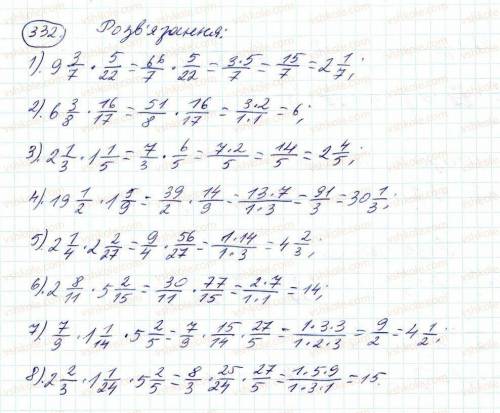 332. Розв'язання:
1). 9 3/7 · 5/22 = 66/7 · 5/22 = 3·5/7 = 15/7 = 2 1/7;
2). 6 3/8 · 16/17 = 51/8 · 16/17 = 3·2/1·1 = 6;
3). 2 1/3 · 1 1/5 = 7/3 · 6/5 = 7·2/5 = 14/5 = 2 4/5;
4). 19 1/2 · 1 5/9 = 39/2 · 14/9 = 13·7/1·3 = 91/3 = 30 1/3;
5). 2 1/4 · 2 2/27 = 9/4 · 56/27 = 1·14/1·3 = 4 2/3;
6). 2 8/11 · 5 2/15 = 30/11 · 77/15 = 2·7/1·1 = 14;
7). 7/9 · 1 1/14 · 5 2/5 = 7/9 · 15/14 · 27/5 = 1·3·3/1·2·3 = 9/2 = 4 1/2;
8). 2 2/3 · 1 1/24 · 5 2/5 = 8/3 · 25/24 · 27/5 = 1·5·9/1·3·1 = 15.